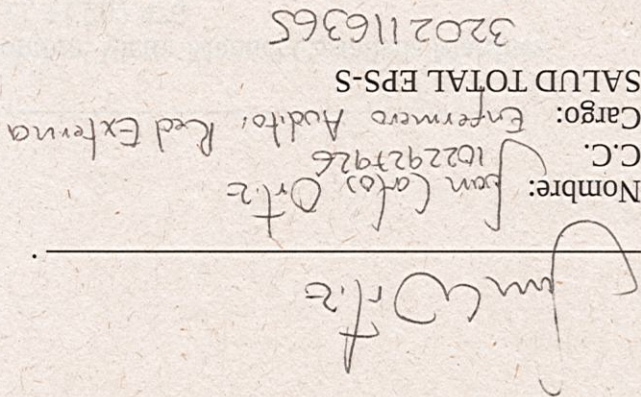 Juan C Ortiz
Nombre: Juan Carlos Ortiz
C.C. 1022927926
Cargo: Enfermero Auditor Red Externa
SALUD TOTAL EPS-S
3202116365